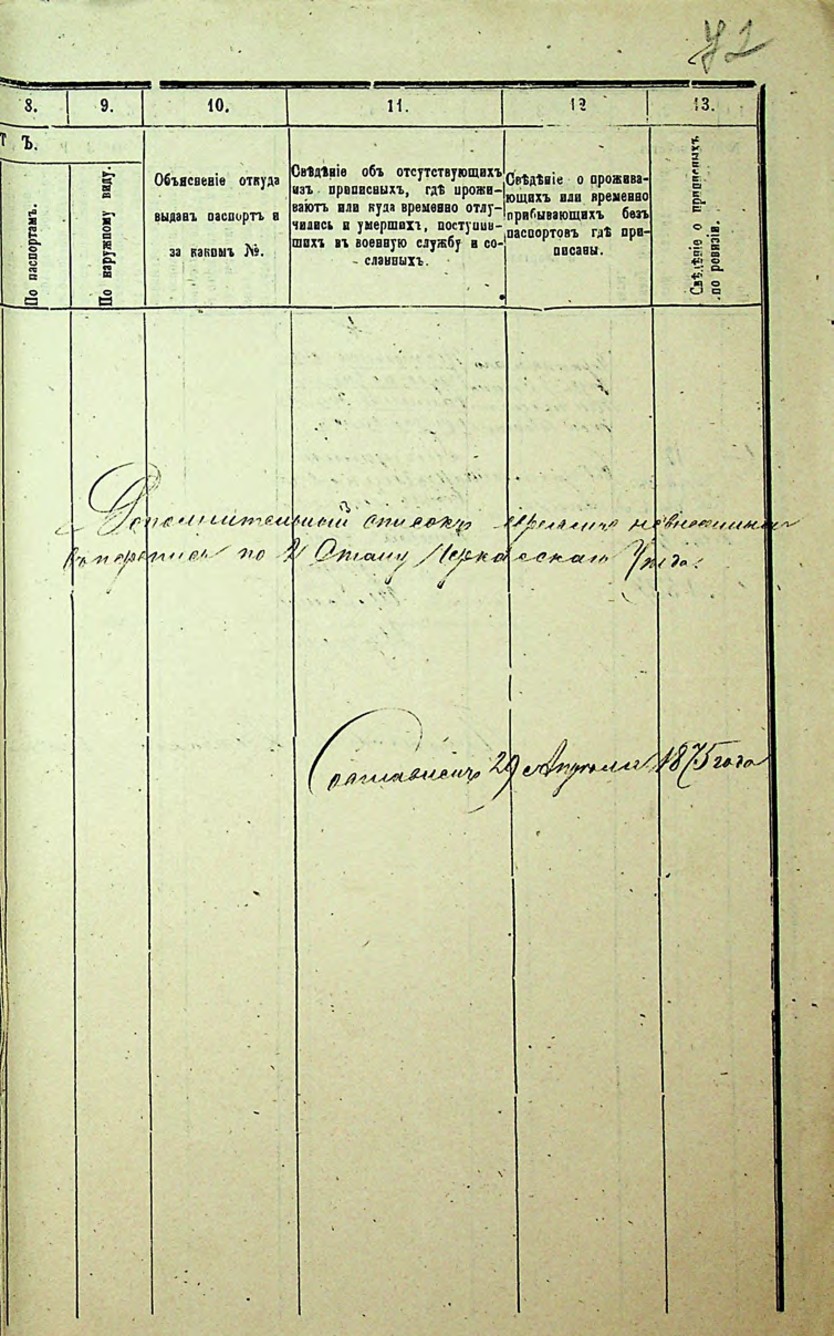 72
8. 9. 10. 11. 12 13.
Т Ъ.
По паспортамъ.
По наружному виду.
Объясненіе откуда
выданъ паспортъ и
за какимъ №.
Свѣдѣніе объ отсутствующихъ
изъ приписныхъ, гдѣ прожи-
ваютъ или куда временно отлу-
чились и умершихъ, поступив-
шихъ въ военную службу и со-
сланныхъ.
Свѣдѣніе о прожива-
ющихъ или временно
прибывающихъ безъ
паспортовъ гдѣ при-
писаны.
Свѣдѣніе о приписныхъ
по ревизіи.
Дополнительный списокъ евреямъ невнесеннымъ
въ перепись по 2 Стану Черкасскаго Уѣзда.
Составленъ 29 Апрѣля 1875 года